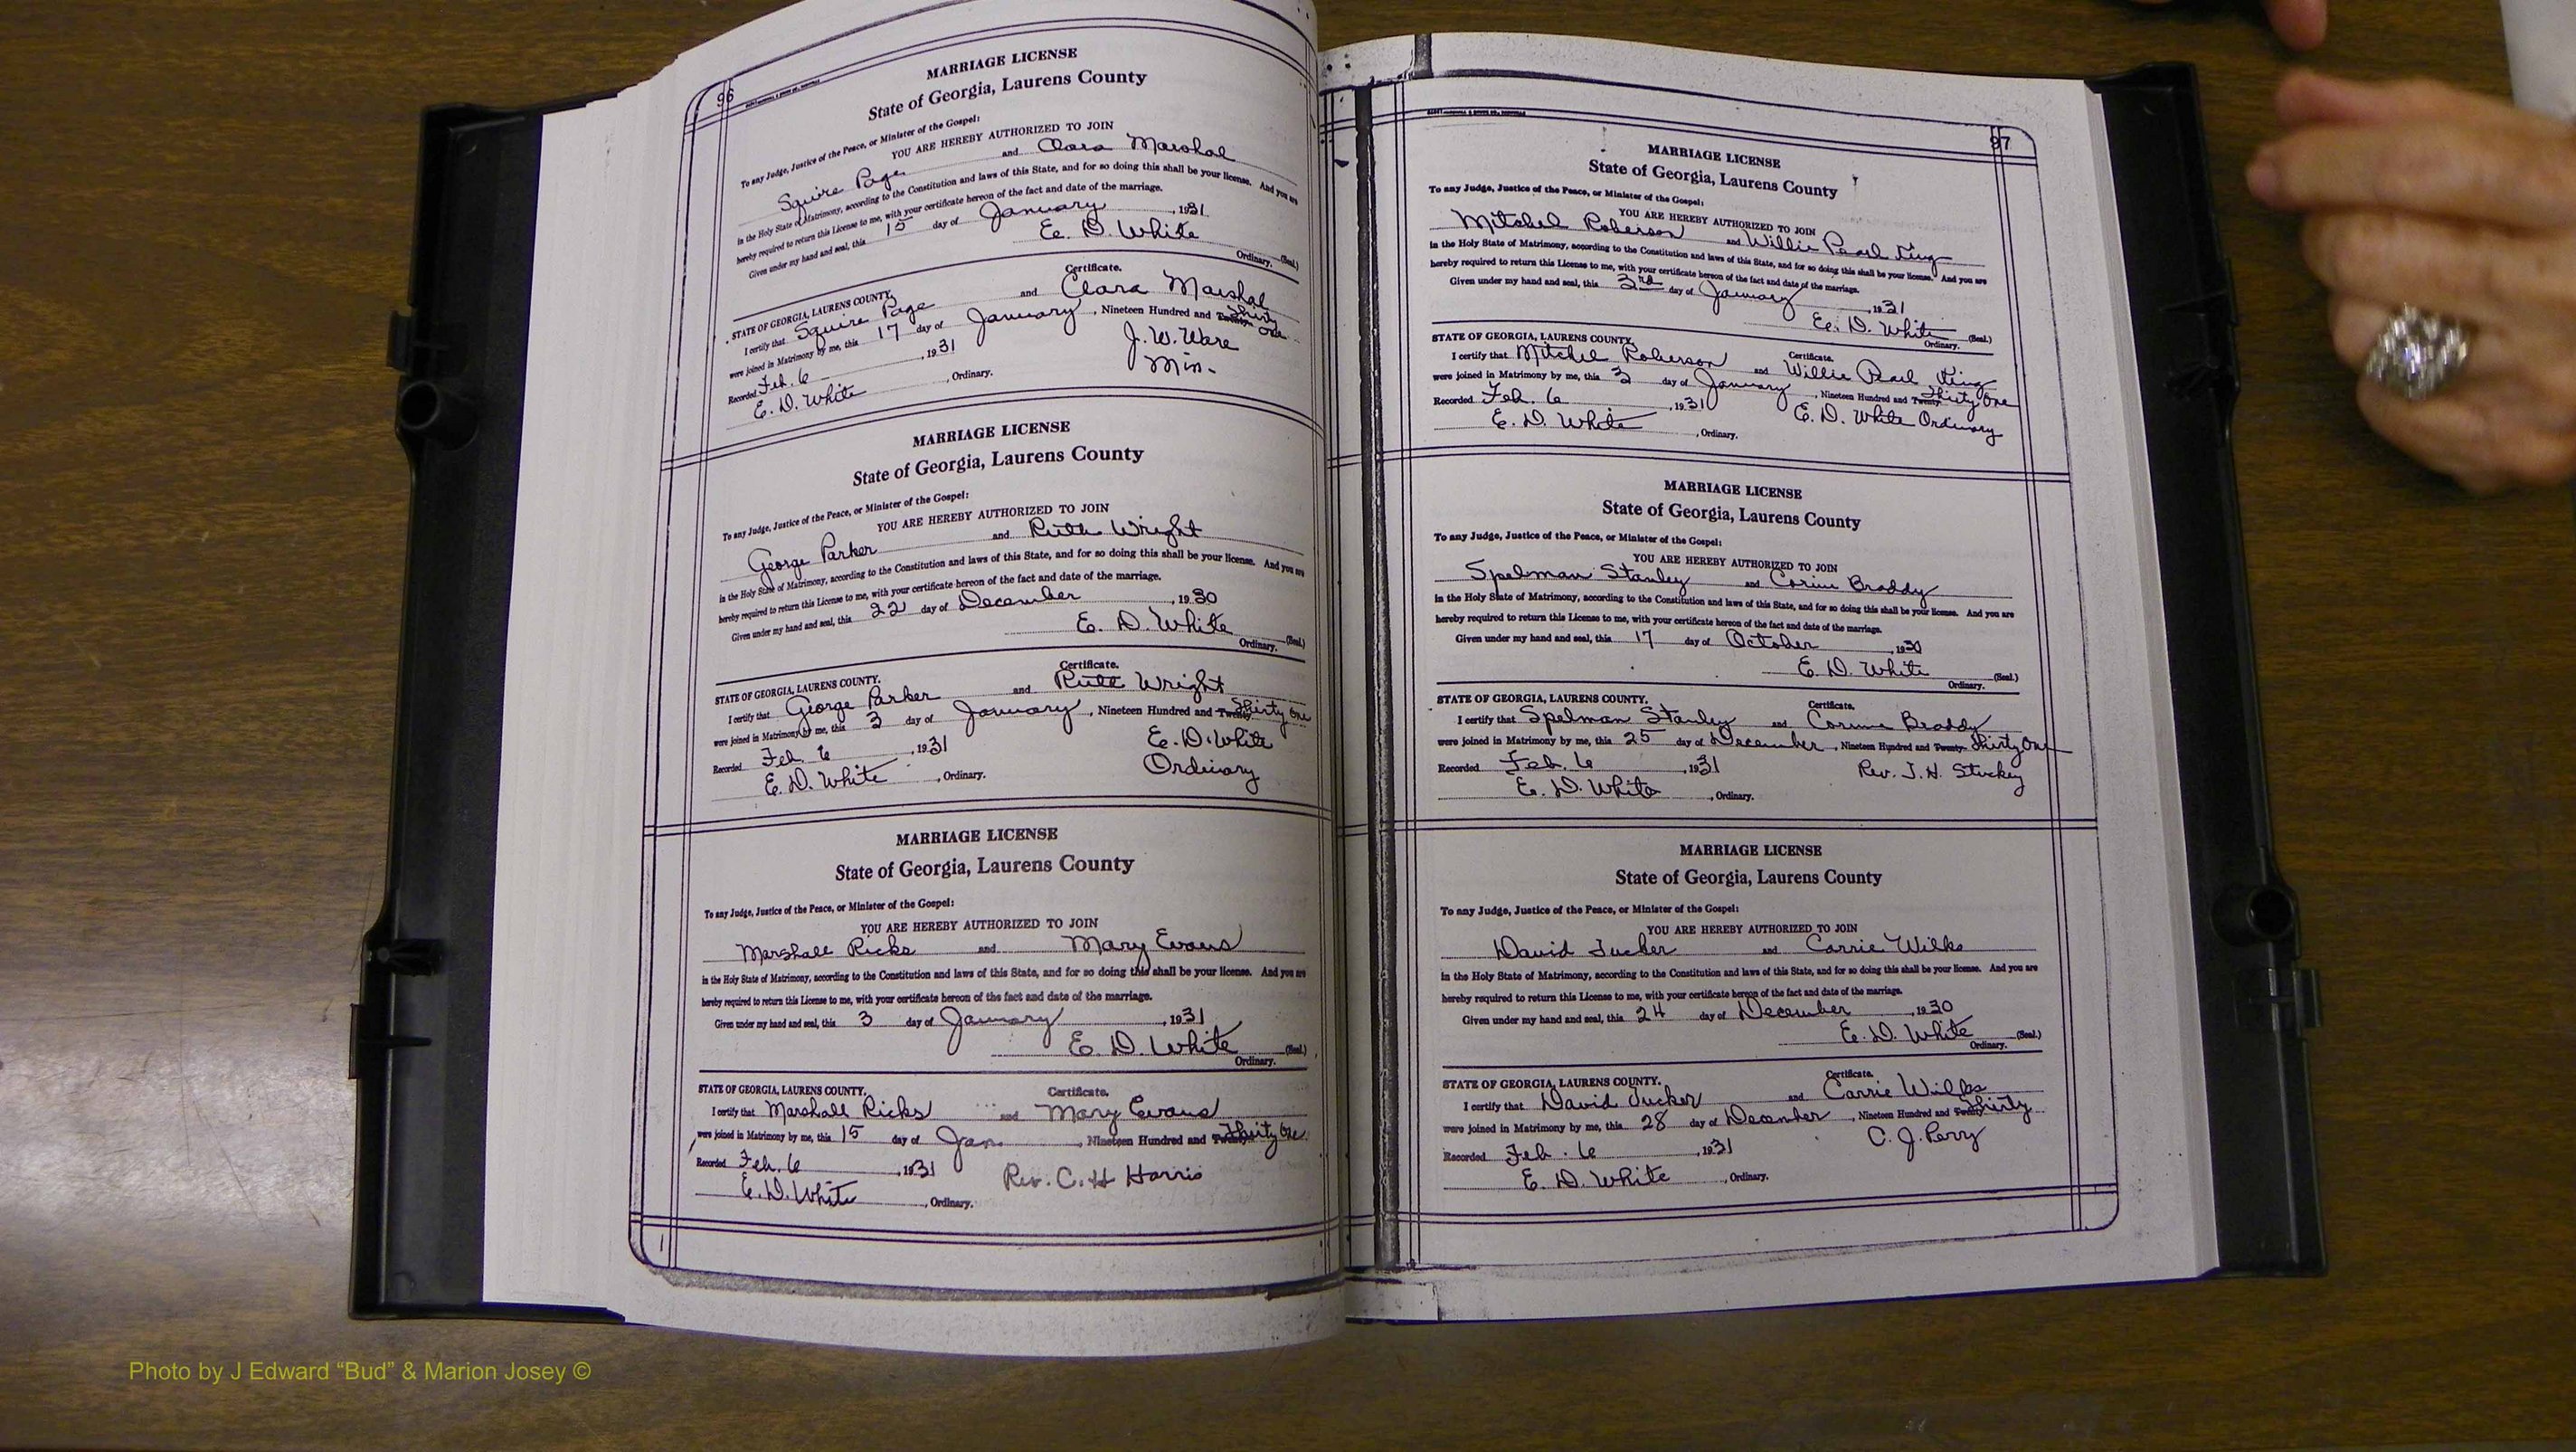 96
MARRIAGE LICENSE
State of Georgia, Laurens County
To any Judge, Justice of the Peace, or Minister of the Gospel:
YOU ARE HEREBY AUTHORIZED TO JOIN
Squire Page and Clara Marshal
in the Holy State of Matrimony, according to the Constitution and laws of this State, and for so doing this shall be your license. And you are
hereby required to return this License to me, with your certificate hereon of the fact and date of the marriage.
Given under my hand and seal, this 15 day of January, 1931
E. D. White (Seal.)
Ordinary.
Certificate.
STATE OF GEORGIA, LAURENS COUNTY.
I certify that Squire Page and Clara Marshal
were joined in Matrimony by me, this 17 day of January, Nineteen Hundred and Twenty Thirty One
Recorded Feb. 6, 1931 J. W. Ware
E. D. White, Ordinary. Min.
MARRIAGE LICENSE
State of Georgia, Laurens County
To any Judge, Justice of the Peace, or Minister of the Gospel:
YOU ARE HEREBY AUTHORIZED TO JOIN
George Parker and Ruth Wright
in the Holy State of Matrimony, according to the Constitution and laws of this State, and for so doing this shall be your license. And you are
hereby required to return this License to me, with your certificate hereon of the fact and date of the marriage.
Given under my hand and seal, this 22 day of December, 1930
E. D. White (Seal.)
Ordinary.
Certificate.
STATE OF GEORGIA, LAURENS COUNTY.
I certify that George Parker and Ruth Wright
were joined in Matrimony by me, this 3 day of January, Nineteen Hundred and Twenty Thirty One
Recorded Feb 6, 1931 E. D. White
E. D. White, Ordinary. Ordinary
MARRIAGE LICENSE
State of Georgia, Laurens County
To any Judge, Justice of the Peace, or Minister of the Gospel:
YOU ARE HEREBY AUTHORIZED TO JOIN
Marshall Ricks and Mary Evans
in the Holy State of Matrimony, according to the Constitution and laws of this State, and for so doing this shall be your license. And you are
hereby required to return this License to me, with your certificate hereon of the fact and date of the marriage.
Given under my hand and seal, this 3 day of January, 1931
E. D. White (Seal.)
Ordinary.
STATE OF GEORGIA, LAURENS COUNTY. Certificate.
I certify that Marshall Ricks and Mary Evans
were joined in Matrimony by me, this 15 day of Jan., Nineteen Hundred and Twenty Thirty One
Recorded Feb. 6, 1931 Rev. C. H Harris
E. D. White, Ordinary.
97
MARRIAGE LICENSE
State of Georgia, Laurens County
To any Judge, Justice of the Peace, or Minister of the Gospel:
YOU ARE HEREBY AUTHORIZED TO JOIN
Mitchel Roberson and Willie Pearl King
in the Holy State of Matrimony, according to the Constitution and laws of this State, and for so doing this shall be your license. And you are
hereby required to return this License to me, with your certificate hereon of the fact and date of the marriage.
Given under my hand and seal, this 3rd day of January, 1931
E. D. White (Seal.)
Ordinary.
STATE OF GEORGIA, LAURENS COUNTY. Certificate.
I certify that Mitchel Roberson and Willie Pearl King
were joined in Matrimony by me, this 3 day of January, Nineteen Hundred and Twenty Thirty One
Recorded Feb. 6, 1931 E. D. White Ordinary
E. D. White, Ordinary.
MARRIAGE LICENSE
State of Georgia, Laurens County
To any Judge, Justice of the Peace, or Minister of the Gospel:
YOU ARE HEREBY AUTHORIZED TO JOIN
Spelman Stanley and Corine Braddy
in the Holy State of Matrimony, according to the Constitution and laws of this State, and for so doing this shall be your license. And you are
hereby required to return this License to me, with your certificate hereon of the fact and date of the marriage.
Given under my hand and seal, this 17 day of October, 1930
E. D. White (Seal.)
Ordinary.
STATE OF GEORGIA, LAURENS COUNTY. Certificate.
I certify that Spelman Stanley and Corinne Braddy
were joined in Matrimony by me, this 25 day of December, Nineteen Hundred and Twenty Thirty One
Recorded Feb. 6, 1931 Rev. J. H. Stuckey
E. D. White, Ordinary.
MARRIAGE LICENSE
State of Georgia, Laurens County
To any Judge, Justice of the Peace, or Minister of the Gospel:
YOU ARE HEREBY AUTHORIZED TO JOIN
David Tucker and Carrie Wilks
in the Holy State of Matrimony, according to the Constitution and laws of this State, and for so doing this shall be your license. And you are
hereby required to return this License to me, with your certificate hereon of the fact and date of the marriage.
Given under my hand and seal, this 24 day of December, 1930
E. D. White (Seal.)
Ordinary.
Certificate.
STATE OF GEORGIA, LAURENS COUNTY.
I certify that David Tucker and Carrie Wilks
were joined in Matrimony by me, this 28 day of December, Nineteen Hundred and Twenty Thirty
Recorded Feb. 6, 1931 C. J. Perry
E. D. White, Ordinary.
Photo by J Edward “Bud” & Marion Josey ©